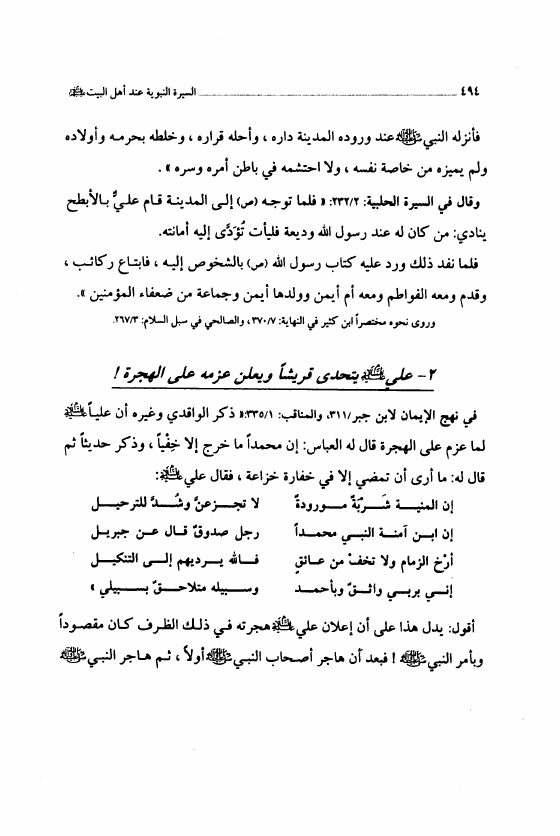 ٤٩٤ السيرة النبوية عند أهل البيت عليهم السلام
فأنزله النبي ﷺ عند وروده المدينة داره ، وأحله قراره ، وخلطه بحرمه وأولاده
ولم يميزه من خاصة نفسه ، ولا احتشمه في باطن أمره وسره » .
وقال في السيرة الحلبية: ٢٣٢/٢: « فلما توجه (ص) إلى المدينة قام عليٌّ بالأبطح
ينادي: من كان له عند رسول الله وديعة فليأت تُؤَدَّى إليه أمانته.
فلما نفد ذلك ورد عليه كتاب رسول الله (ص) بالشخوص إليه ، فابتاع ركائب ،
وقدم ومعه الفواطم ومعه أم أيمن وولدها أيمن وجماعة من ضعفاء المؤمنين ».
وروى نحوه مختصراً ابن كثير في النهاية: ٣٧٠/٧، والصالحي في سبل السلام: ٢٦٧/٣.
٢- علي عليه السلام يتحدى قريشاً ويعلن عزمه على الهجرة !
في نهج الإيمان لابن جبر/٣١١، والمناقب: ٣٣٥/١:« ذكر الواقدي وغيره أن علياً عليه السلام
لما عزم على الهجرة قال له العباس: إن محمداً ما خرج إلا خِفْياً ، وذكر حديثاً ثم
قال له: ما أرى أن تمضي إلا في خفارة خزاعة ، فقال علي عليه السلام:
إن المنيـة شَـرْبَةٌ مـورودةٌ لا تجـزعنَّ وشُـدَّ للترحيـل
إن ابـن آمنـة النبـي محمـداً رجل صدوقٌ قال عن جبريـل
أرْخ الزمام ولا تخفْ من عـائقٍ فـالله يـرديهم إلـى التنكيـل
إنـي بربـي واثـقٌ وبأحمـد وسـبيله متلاحـقٌ بسـبيلي »
أقول: يدل هذا على أن إعلان علي عليه السلام هجرته في ذلك الظرف كان مقصوداً
وبأمر النبي ﷺ ! فبعد أن هاجر أصحاب النبي ﷺ أولاً ، ثم هاجر النبي ﷺ